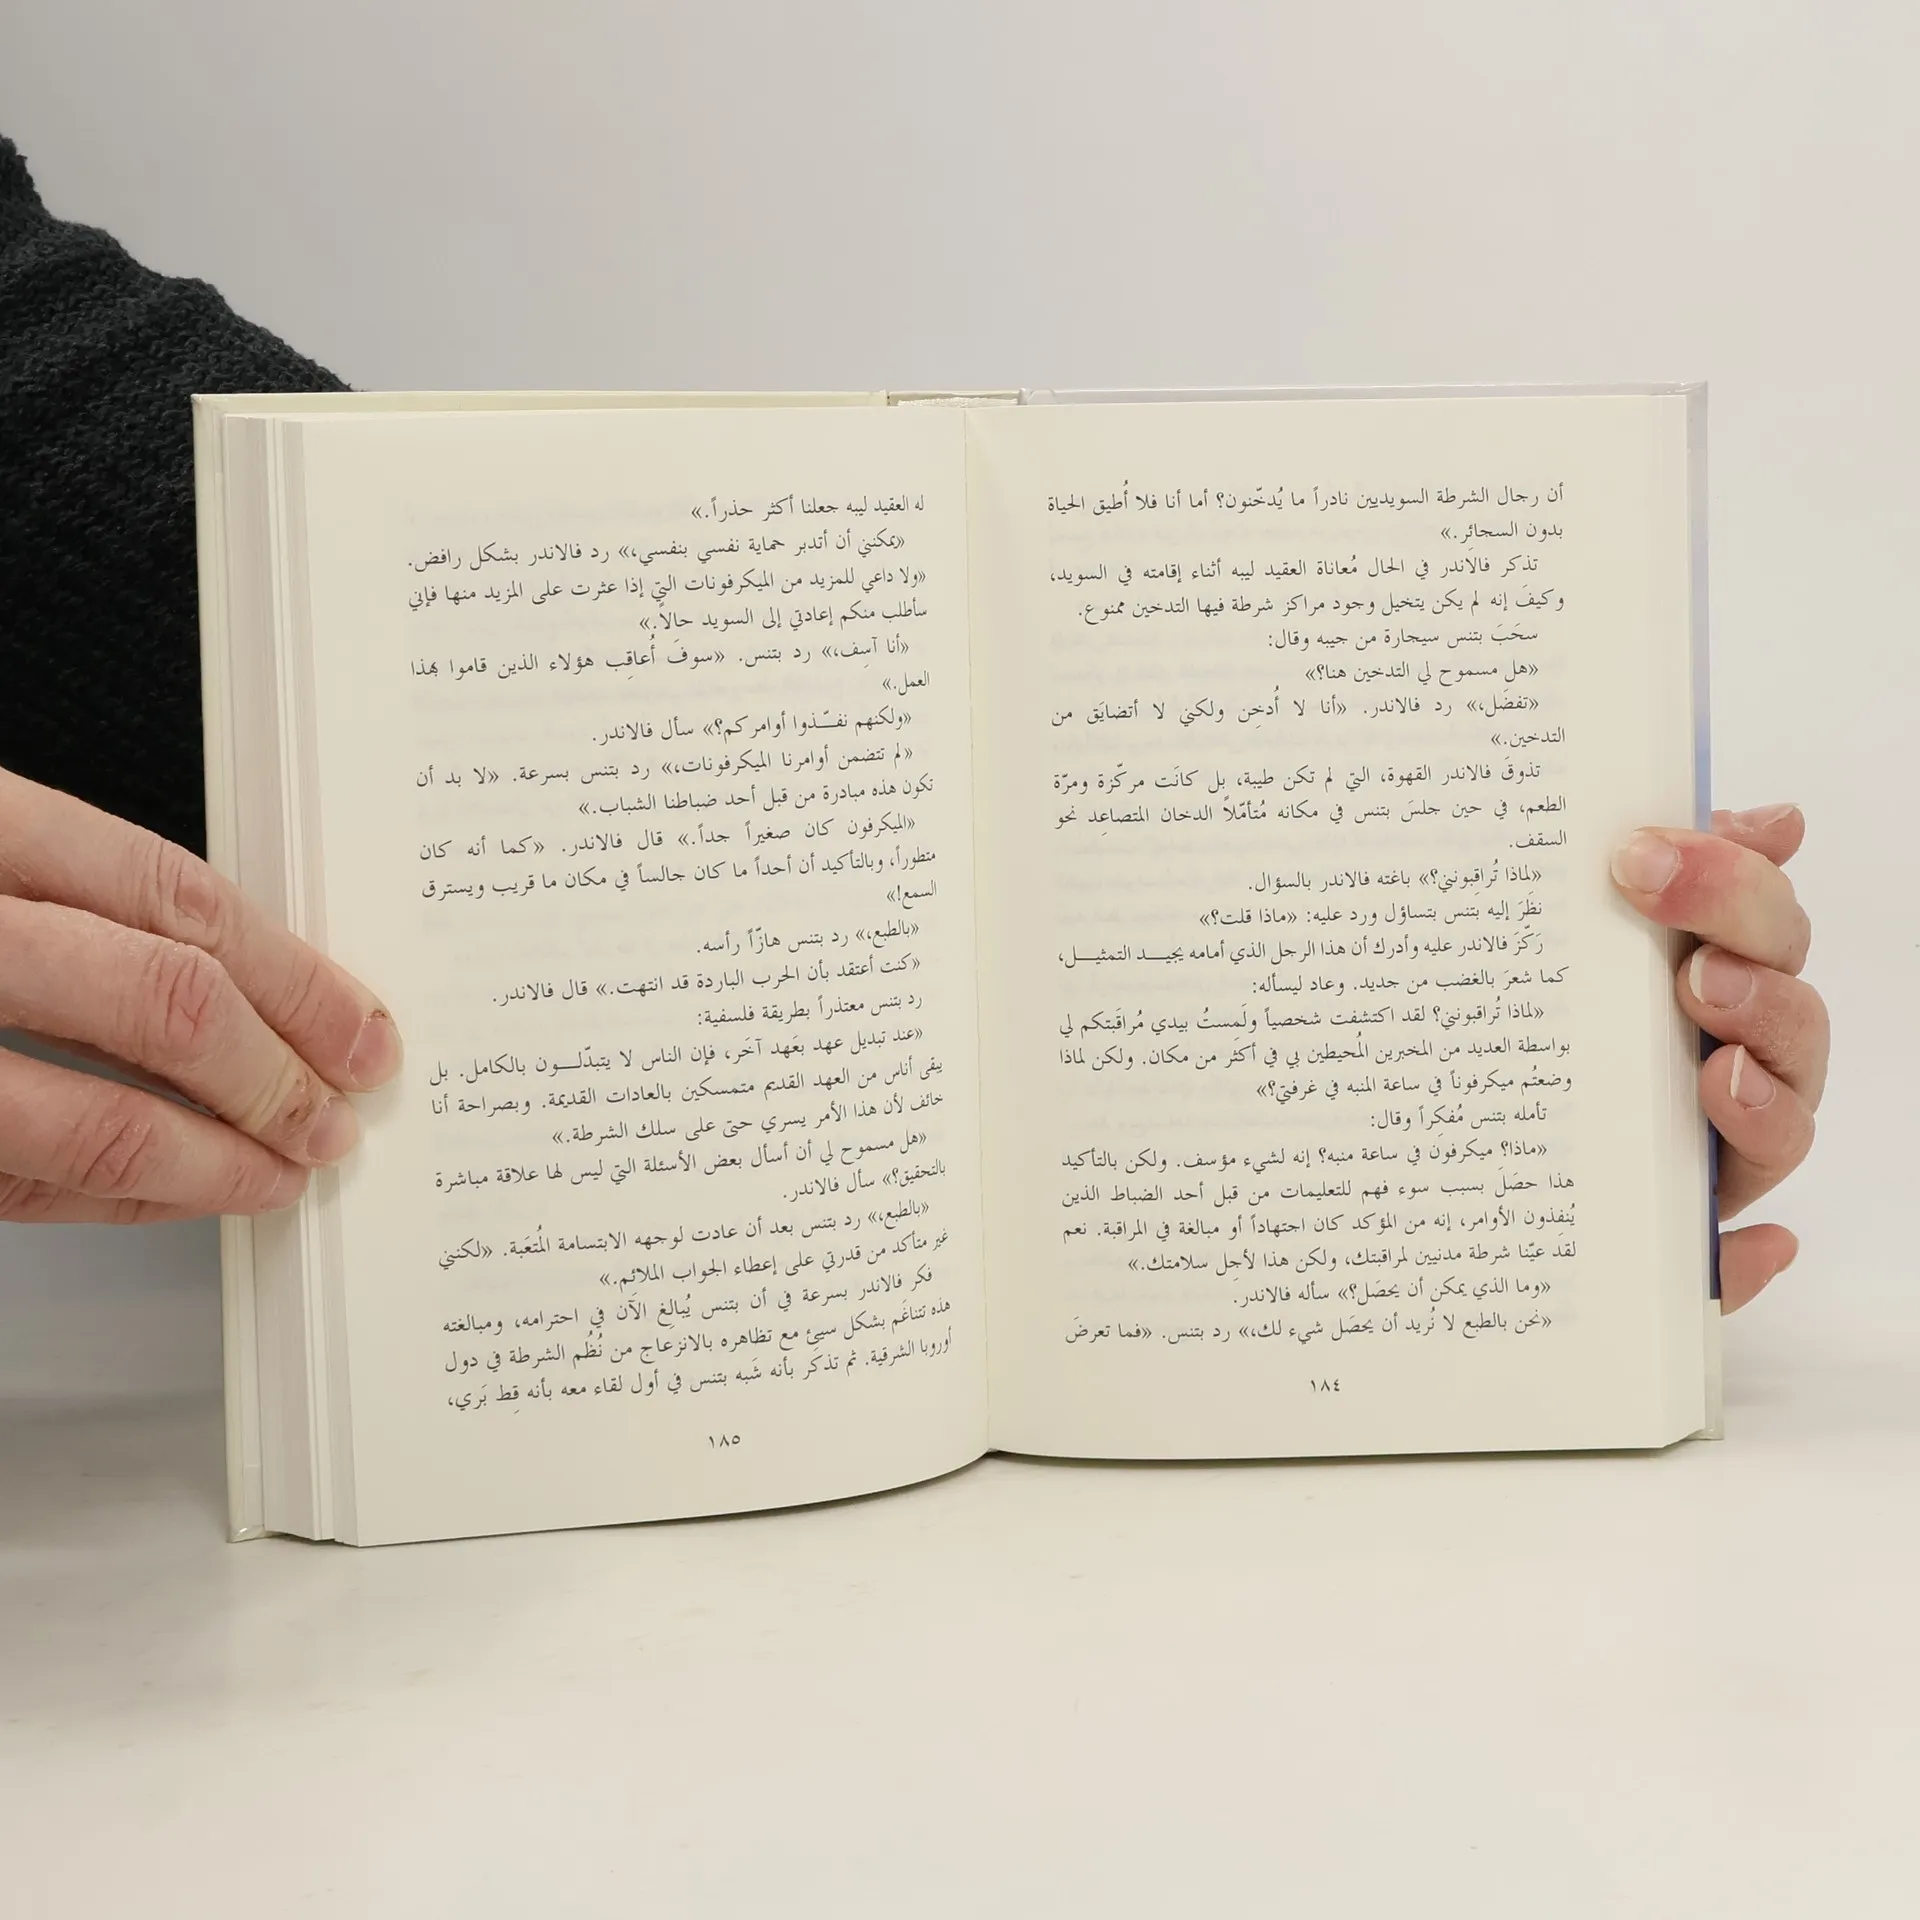 أن رجال الشرطة السويديين نادراً ما يُدخّنون؟ أما أنا فلا أُطيق الحياة
بدون السجائِر.»
تذكر فالاندر في الحال مُعاناة العقيد ليبه أثناء إقامته في السويد،
وكيفَ إنه لم يكن يتخيل وجود مراكز شرطة فيها التدخين ممنوع.
سحَبَ بتنس سيجارة من جيبه وقال:
«هل مسموح لي التدخين هنا؟»
«تفضَل،» رد فالاندر. «أنا لا أُدخِن ولكني لا أتضايَق من
التدخين.»
تذوقَ فالاندر القهوة، التي لم تكن طيبة، بل كانَت مركّزة ومرّة
الطعم، في حين جلسَ بتنس في مكانه مُتأمّلاً الدخان المتصاعِد نحو
السقف.
«لماذا تُراقِبونني؟» باغته فالاندر بالسؤال.
نظَرَ إليه بتنس بتساؤل ورد عليه: «ماذا قلت؟»
رَكّزَ فالاندر عليه وأدرك أن هذا الرجل الذي أمامه يجيـــد التمثيـــل،
كما شعرَ بالغضب من جديد. وعاد ليسأله:
«لماذا تُراقبونني؟ لقد اكتشفت شخصياً ولَمِستُ بيدي مُراقَبتكم لي
بواسطة العديد من المخبرين المُحيطين بي في أكثر من مكان. ولكن لماذا
وضعتُم ميكرفوناً في ساعة المنبه في غرفتي؟»
تأمله بتنس مُفكِراً وقال:
«ماذا؟ ميكرفون في ساعة منبه؟ إنه لشيء مؤسف. ولكن بالتأكيد
هذا حصَلَ بسبب سوء فهم للتعليمات من قبل أحد الضباط الذين
يُنفِذون الأوامر، إنه من المؤكد كان اجتهاداً أو مبالغة في المراقبة. نعم
لقد عيّنا شرطة مدنيين لمراقبتك، ولكن هذا لأجِل سلامتك.»
«وما الذي يمكن أن يحصَل؟» سأله فالاندر.
«نحن بالطبع لا نُريد أن يحصَل شيء لك،» رد بتنس. «فما تعرضَ
١٨٤
له العقيد ليبه جعلنا أكثر حذراً.»
«يمكنني أن أتدبر حماية نفسي بنفسي،» رد فالاندر بشكل رافض.
«ولا داعي للمزيد من الميكرفونات التي إذا عثرت على المزيد منها فإني
سأطلب منكم إعادتي إلى السويد حالاً.»
«أنا آسِف،» رد بتنس. «سوفَ أُعاقِب هؤلاء الذين قاموا بهذا
العمل.»
«ولكنهم نفـّـذوا أوامركم؟» سأل فالاندر.
«لم تتضمن أوامرنا الميكرفونات،» رد بتنس بسرعة. «لا بد أن
تكون هذه مبادرة من قبل أحد ضباطنا الشباب.»
«الميكرفون كان صغيراً جداً.» قال فالاندر. «كما أنه كان
متطوراً، وبالتأكيد أن أحداً ما كان جالساً في مكان ما قريب ويسترق
السمع!»
«بالطبع،» رد بتنس هازّاً رأسه.
«كنت أعتقد بأن الحرب الباردة قد انتهت.» قال فالاندر.
رد بتنس معتذراً بطريقة فلسفية:
«عند تبديل عهد بعَهد آخَر، فإن الناس لا يتبدّلـــون بالكامل. بل
يبقى أناس من العهد القديم متمسكين بالعادات القديمة. وبصراحة أنا
خائف لأن هذا الأمر يسري حتى على سلك الشرطة.»
«هل مسموح لي أن أسأل بعض الأسئلة التي ليس لها علاقة مباشرة
بالتحقيق؟» سأل فالاندر.
«بالطبع،» رد بتنس بعد أن عادت لوجهه الابتسامة المُتعَبة. «لكنني
غير متأكد من قدرتي على إعطاء الجواب الملائِم.»
فكر فالاندر بسرعة في أن بتنس يُبالِغ الآن في احترامه، ومبالغته
هذه تتناغَم بشكل سيئ مع تظاهره بالانزعاج من نُظُم الشرطة في دول
أوروبا الشرقية. ثم تذكّر بأنه شَبه بتنس في أول لقاء معه بأنه قِط بَري،
١٨٥